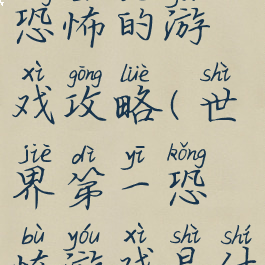 恐怖的游
xì gōng lüè shì
戏攻略(世
jiè dì yī kǒng
界第一恐
bù yóu xì shì shí
怖游戏是什